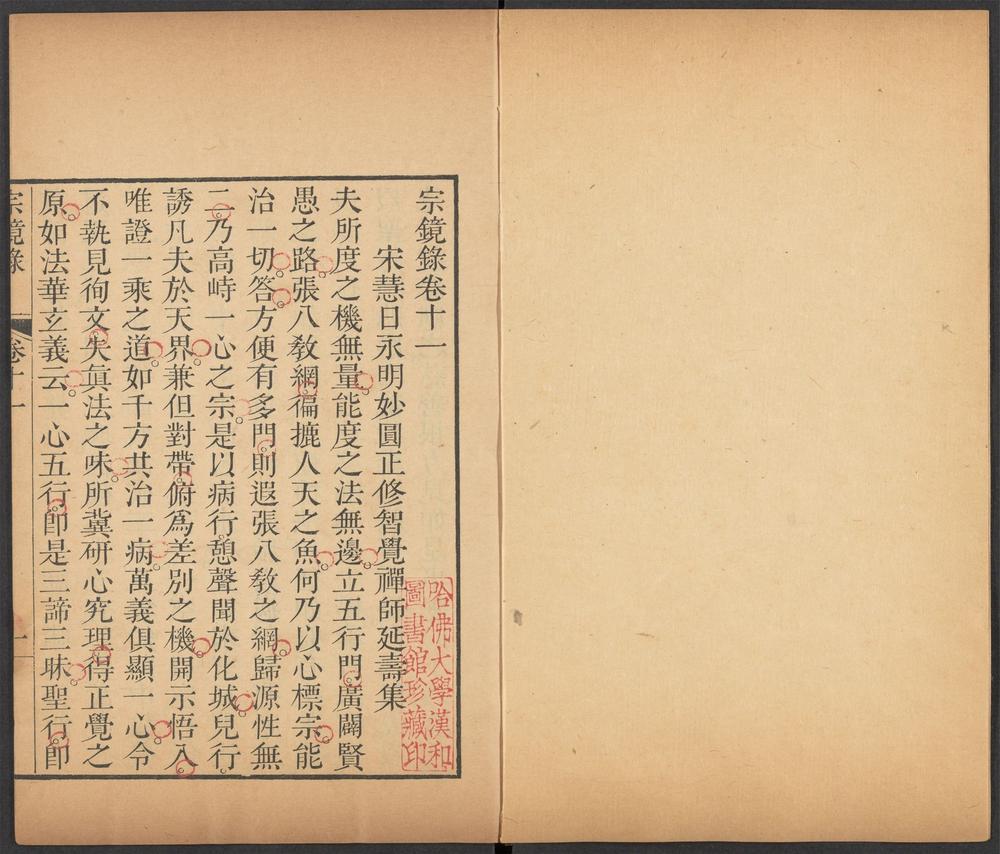 宗鏡錄卷十一
宋慧日永明妙圓正修智覺禪師延壽集
夫所度之機無量能度之法無邊立五行門廣闢賢
愚之路張八教網徧摝人天之魚何乃以心標宗能
治一切答方便有多門則遐張八教之網歸源性無
二乃高峙一心之宗是以病行憩聲聞於化城兒行
誘凡夫於天界兼但對帶俯爲差別之機開示悟入
唯證一乘之道如千方共治一病萬義俱顯一心令
不執見徇文失眞法之味所冀研心究理得正覺之
原如法華玄義云一心五行卽是三諦三昧聖行卽
宗鏡錄 卷十一 一
哈佛大學漢和
圖書館珍藏印